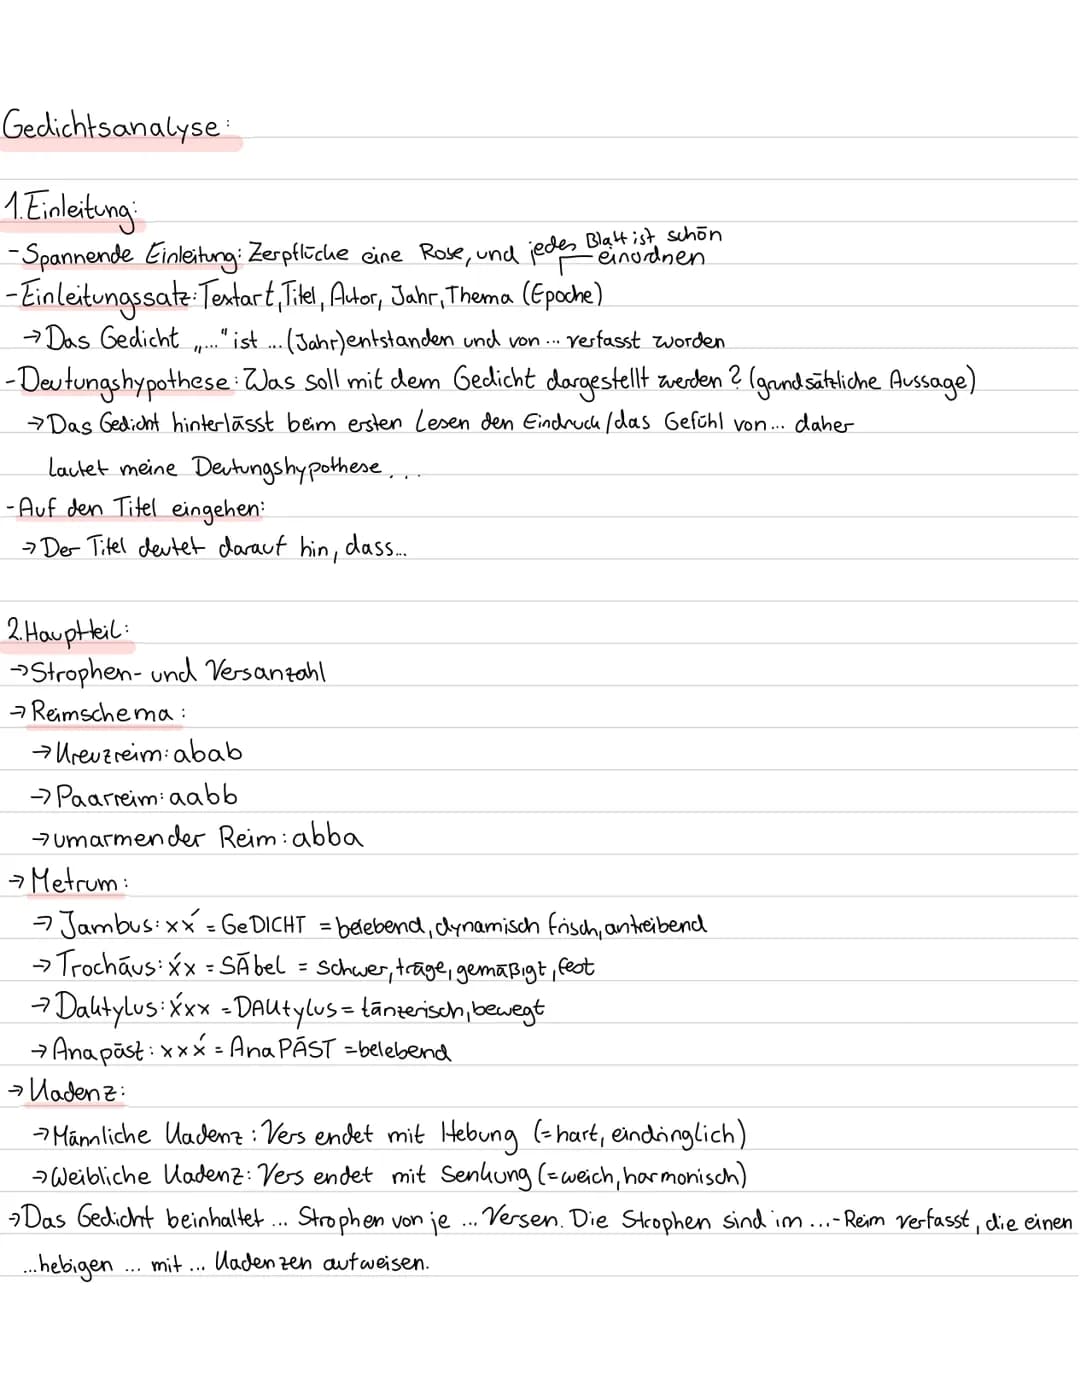 Gedichtsanalyse:
1. Einleitung:
- Spannende Einleitung: Zerpflücke eine Rose, und jedes Blatt ist schön
einordnen
- Einleitungssatz: Textart, Titel, Autor, Jahr, Thema (Epoche)
→ Das Gedicht „..." ist ... (Jahr) entstanden und von ... verfasst worden
- Deutungshypothese: Was soll mit dem Gedicht dargestellt werden? (grundsätzliche Aussage)
→ Das Gedicht hinterlässt beim ersten Lesen den Eindruck / das Gefühl von ... daher
lautet meine Deutungshypothese ...
- Auf den Titel eingehen:
→ Der Titel deutet darauf hin, dass...
2. Hauptteil:
→ Strophen- und Versanzahl
→ Reimschema:
→ Kreuzreim: abab
→ Paarreim: aabb
→ umarmender Reim: abba
→ Metrum:
→ Jambus: xx́ = GeDICHT = belebend, dynamisch frisch, antreibend
→ Trochäus: x́x = SÄbel = schwer, träge, gemäßigt, fest
→ Daktylus: x́xx = DAKtylus = tänzerisch, bewegt
→ Anapäst: xxx́ = AnaPÄST = belebend
→ Kadenz:
→ Männliche Kadenz: Vers endet mit Hebung (= hart, eindringlich)
→ Weibliche Kadenz: Vers endet mit Senkung (= weich, harmonisch)
→ Das Gedicht beinhaltet ... Strophen von je ... Versen. Die Strophen sind im ...-Reim verfasst, die einen
...hebigen ... mit ... Kadenzen aufweisen.